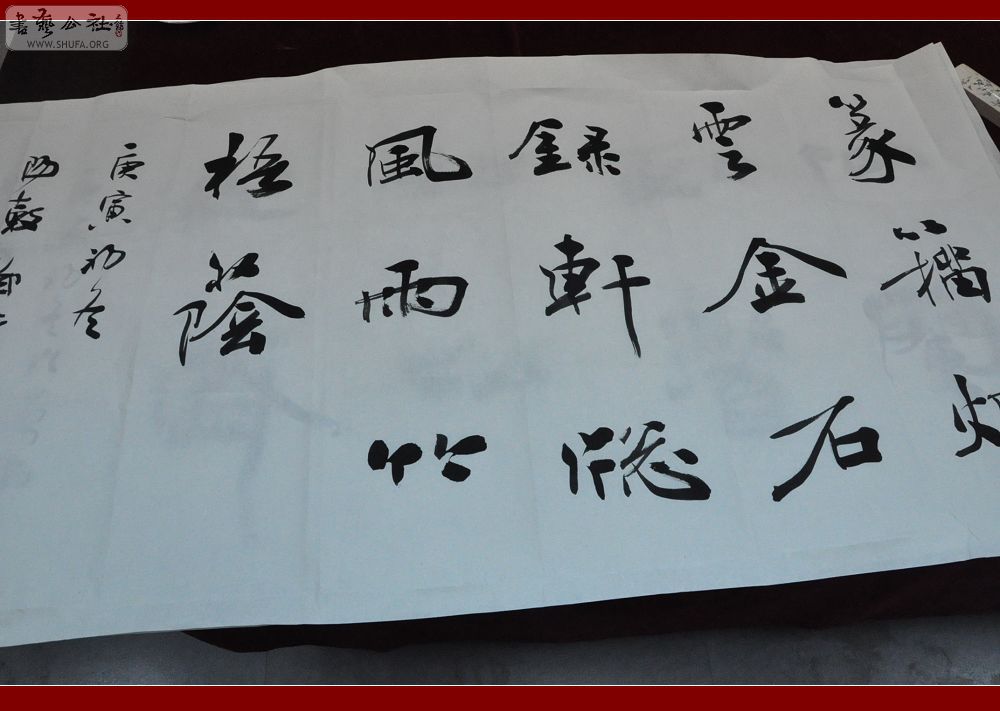 書藝公社
WWW.SHUFA.ORG
篆籀
雲金石
錄軒牕
風雨竹
梧蔭
庚寅初冬